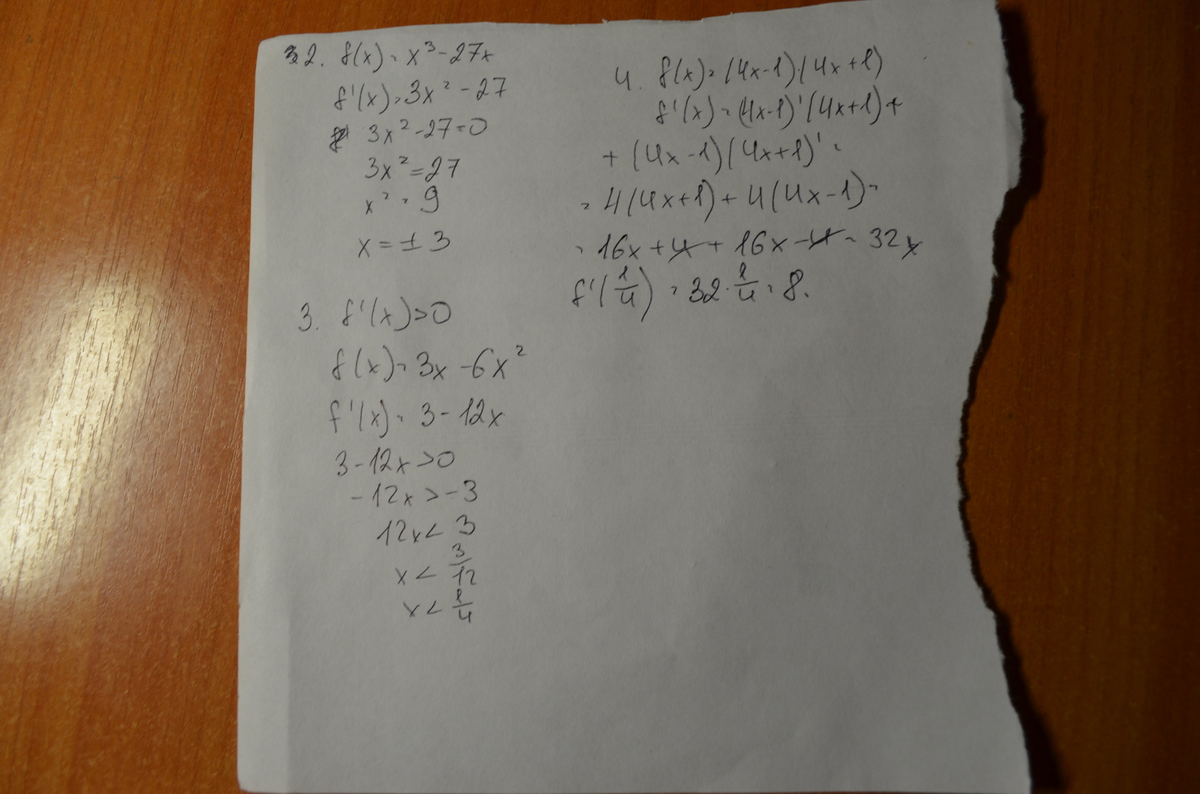 2. f(x) = x³ - 27x
f'(x) = 3x² - 27
3x² - 27 = 0
3x² = 27
x² = 9
x = ± 3
3. f'(x) > 0
f(x) = 3x - 6x²
f'(x) = 3 - 12x
3 - 12x > 0
- 12x > - 3
12x < 3
x < 3/12
x < 1/4
4. f(x) = (4x-1)(4x+1)
f'(x) = (4x-1)'(4x+1) +
+ (4x-1)(4x+1)' =
= 4(4x+1) + 4(4x-1) =
= 16x + 4 + 16x - 4 = 32x
f'(1/4) = 32 · 1/4 = 8.